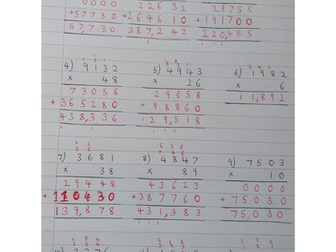 0000 22632 28755
+57730 +264610 +191700
57,730 287,242 220,455
4) 9132 5) 4943 6) 1982
x 48 x 26 x 6
73056 29658 11,892
+365280 +98860
438,336 129,518
7) 3681 8) 4847 9) 7503
x 38 x 89 x 10
29448 43623 0000
+110430 +387760 +75030
139,878 431,383 75,030